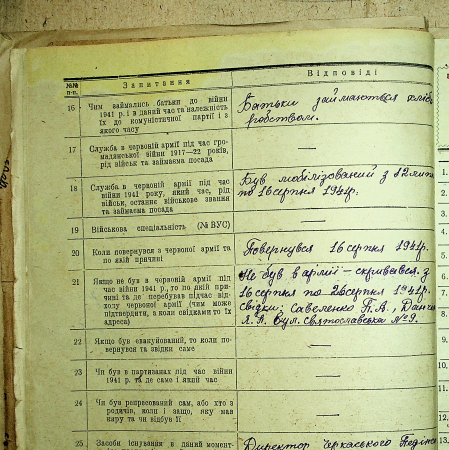 №№ п-п. Запитання Відповіді
16 Чим займались батьки до війни
1941 р. і в даний час та належність
їх до комуністичної партії і з
якого часу
Батьки займаються хлібо
робством.
17 Служба в червоній армії під час гро-
мадянської війни 1917—22 років,
рід військ та займаєма посада
—
18 Служба в червоній армії під час
війни 1941 року, який час, рід
військ, останнє військове звання
та займаєма посада
Був мобілізований з 12 липн
по 16 серпня 1941р.
19 Військова спеціяльність (№ ВУС)
—
20 Коли повернувся з червоної армії та
по якій причині
Повернувся 16 серпня 1941р.
21 Якщо не був в червоній армії під
час війни 1941 р., то по якій при-
чині та де перебував підчас від-
ходу червоної армії (чим може
підтвердити, а коли свідками то їх
адреса)
Не був в армії — скривався з
16 серпня по 26 серпня 1941р.
свідки: Савеленко П. А.,
вул. Святославська № 9.
22 Якщо був евакуйований, то коли по-
вернувся та звідки саме
—
23 Чи був в партизанах під час війни
1941 р. та де саме і який час
—
24 Чи був репресований сам, або хто з
родичів, коли і защо, яку мав
кару та чи відбув її
—
25 Засоби існування в даний момент
Директор Черкаського
1.
2.
3.
4.
5.
6.
7.
8.
9.
10.
11.
12.
13.